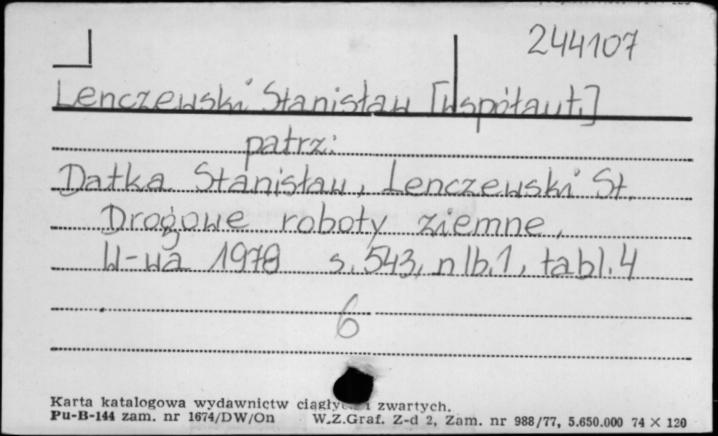 244107
Lenczewski Stanisław [współaut.]
patrz:
Datka Stanisław, Lenczewski St.
Drogowe roboty ziemne,
W-wa 1978 s. 543, nlb. 1, tabl. 4
6
Karta katalogowa wydawnictw i zwartych.
Pu-B-144 zam. nr 1674/DW/On W.Z.Graf. Z-d 2, Zam. nr 988/77, 5.650.000 74 × 120